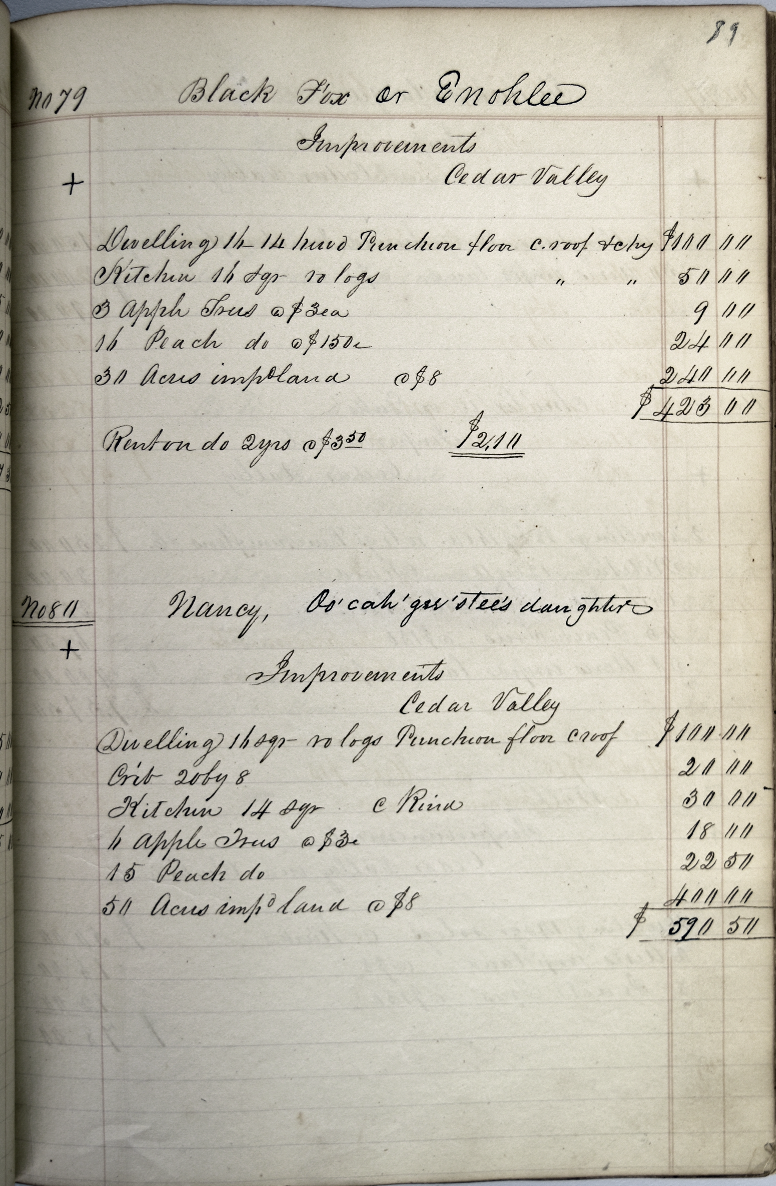 89
No 79 Black Fox or Enohlee
Improvements
+ Cedar Valley
Dwelling 16 14 hewd Puncheon floor c. roof & chy $100 00
Kitchen 16 sqr ro logs " " 50 00
3 Apple Trees @ $3 ea 9 00
16 Peach do @ $150c 24 00
30 Acres impd land @ $8 240 00
$ 423 00
Rent on do 2 yrs @ $3 50 $210
No 80 Nancy, Oo'cah'gus'stee's daughter
+
Improvements
Cedar Valley
Dwelling 16 sqr ro logs Puncheon floor c roof $100 00
Crib 20 by 8 20 00
Kitchen 14 sqr c Kind 30 00
6 Apple Trees @ $3c 18 00
15 Peach do 22 50
50 Acres impd land @ $8 400 00
$ 590 50